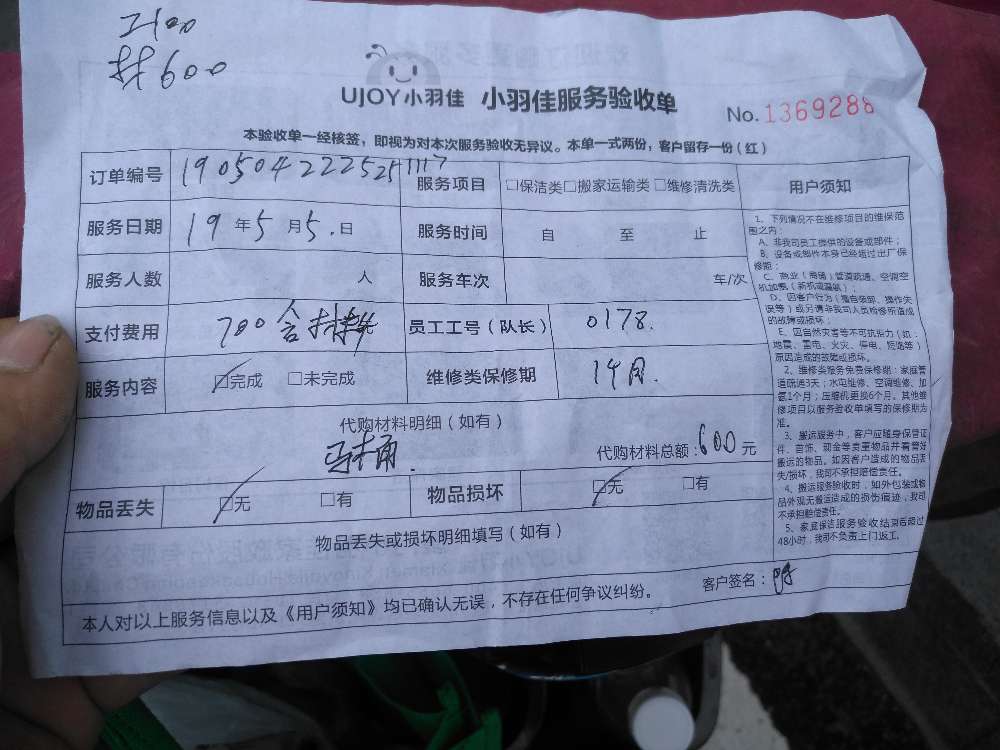 工100
材600
UJOY小羽佳 小羽佳服务验收单
No.1369288
本验收单一经核签，即视为对本次服务验收无异议。本单一式两份，客户留存一份（红）
订单编号 190504222525111117 服务项目 □保洁类□搬家运输类□维修清洗类
服务日期 19年5月5.日 服务时间 自 至 止
服务人数 人 服务车次 车/次
支付费用 700含材料 员工工号（队长） 0178.
服务内容 □完成 □未完成 维修类保修期 1年月.
代购材料明细（如有）
马桶. 代购材料总额：600元
物品丢失 □无 □有 物品损坏 □无 □有
物品丢失或损坏明细填写（如有）
客户签名：
本人对以上服务信息以及《用户须知》均已确认无误，不存在任何争议纠纷。
用户须知
1、下列情况不在维修项目的维保范
围之内：
A、非我司员工提供的设备或部件；
B、设备或部件本身已经超过出厂保
修期；
C、商业（商铺）管道疏通、空调空
机加氨（新机或漏氨）；
D、因客户行为（擅自装卸、操作失
误等）或另请非我司人员检修所造成
的故障或损坏；
E、因自然灾害等不可抗拒力（如：
地震、雷电、火灾、停电、短路等）
原因造成的故障或损坏。
2、维修类服务免费保修期：家庭管
道疏通3天；水电维修、空调维修、加
氨1个月；压缩机更换6个月。其他维
修项目以服务验收单填写的保修期为
准。
3、搬运服务中，客户应随身保管证
件、首饰、现金等贵重物品并看管好
搬运的物品。如因客户造成的物品丢
失/损坏，我司不承担赔偿责任。
4、搬运服务验收时，如外包装或物
品外观无搬运造成的损伤痕迹，我司
不承担赔偿责任。
5、家庭保洁服务验收结束后超过
48小时，我司不负责上门返工。